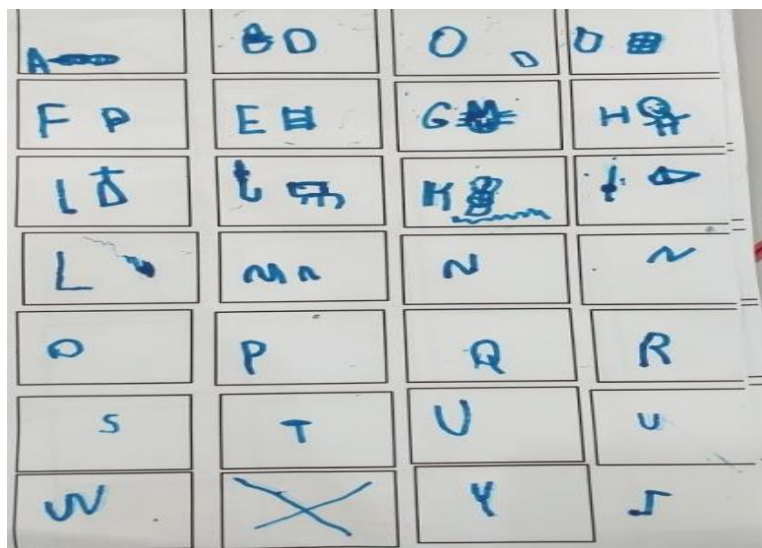 A
B D
O
D
F P
E
G
H
L
K
L
M n
N
~
O
P
Q
R
S
T
U
U
W
X
Y